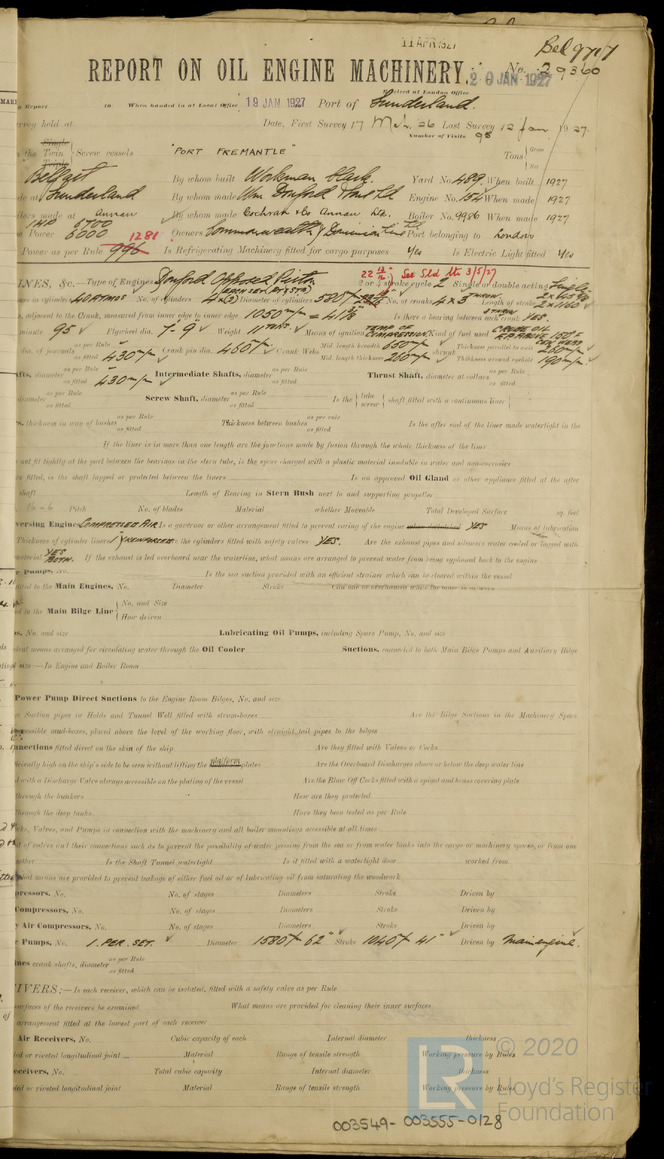 11 APR 1927
Bel 9717
REPORT ON OIL ENGINE MACHINERY.
No. 29360
20 JAN 1927
Received at London Office
Report to When handed in at Local Office 19 JAN 1927 Port of Sunderland.
Survey held at Date, First Survey 17 Mch. 26 Last Survey 12 Jan 1927.
Number of Visits 98
the Single Twin Triple Screw vessels "PORT FREMANTLE" Tons Gross Net
Belfast By whom built Workman Clark Yard No. 489. When built 1927
Sunderland By whom made Wm Doxford & Sons Ltd Engine No. 154 When made 1927
made at Annan By whom made Cochran & Co Annan Ltd. Boiler No. 9986 When made 1927
IHP 6700
Power 6000 Owners Commonwealth & Dominion Line Ltd Port belonging to London
1281
Power as per Rule 996 Is Refrigerating Machinery fitted for cargo purposes Yes Is Electric Light fitted Yes
INES, &c.—Type of Engines Doxford Opposed Piston 2 or 4 stroke cycle 2 Single or double acting Single
See Sld ltr 3/5/27
in cylinders 40 ATMOS No. of cylinders 4 x (2) Diameter of cylinders 580 No. of cranks 4 x 3 Length of stroke
adjacent to the Crank, measured from inner edge to inner edge 1050 m/m = 41 Is there a bearing between each crank YES.
minute 95 Flywheel dia. 7-9 Weight 11 TONS. Means of ignition TEMP OF COMPRESSION Kind of fuel used CRUDE OIL
dia. of journals as per Rule as fitted 430 m/m Crank pin dia. 460 m/m Crank Webs Mid. length breadth 650 m/m Mid. length thickness 260 m/m shrunk Thickness parallel to axis 260 m/m Thickness around eyehole 190 m/m
fts, diameter as per Rule as fitted 430 m/m Intermediate Shafts, diameter as per Rule as fitted Thrust Shaft, diameter at collars as per Rule as fitted
diameter as per Rule as fitted Screw Shaft, diameter as per Rule as fitted Is the tube screw shaft fitted with a continuous liner
s, thickness in way of bushes as per Rule as fitted Thickness between bushes as per rule as fitted Is the after end of the liner made watertight in the
If the liner is in more than one length are the junctions made by fusion through the whole thickness of the liner
not fit tightly at the part between the bearings in the stern tube, is the space charged with a plastic material insoluble in water and non-corrosive
re fitted, is the shaft lapped or protected between the liners Is an approved Oil Gland or other appliance fitted at the after
shaft Length of Bearing in Stern Bush next to and supporting propeller
Pitch No. of blades Material whether Moveable Total Developed Surface sq. feet
versing Engines COMPRESSED AIR Is a governor or other arrangement fitted to prevent racing of the engine when declutched YES Means of lubrication
Thickness of cylinder liners Are the cylinders fitted with safety valves YES. Are the exhaust pipes and silencers water cooled or lagged with
material YES BOTH. If the exhaust is led overboard near the waterline, what means are arranged to prevent water from being syphoned back to the engine
r Pumps, No. Is the sea suction provided with an efficient strainer which can be cleared within the vessel
to the Main Engines, No. Diameter Stroke
to the Main Bilge Line No. and Size How driven
s. No. and size Lubricating Oil Pumps, including Spare Pump, No. and size
means arranged for circulating water through the Oil Cooler Suctions, connected to both Main Bilge Pumps and Auxiliary Bilge
size:—In Engine and Boiler Room
Power Pump Direct Suctions to the Engine Room Bilges, No. and size
Suction pipes in Holds and Tunnel Well fitted with strum-boxes Are the Bilge Suctions in the Machinery Space
accessible mud-boxes, placed above the level of the working floor, with straight tail pipes to the bilges
nnections fitted direct on the skin of the ship Are they fitted with Valves or Cocks
ficiently high on the ship's side to be seen without lifting the platform plates Are the Overboard Discharges above or below the deep water line
d with a Discharge Valve always accessible on the plating of the vessel Are the Blow Off Cocks fitted with a spigot and brass covering plate
through the bunkers How are they protected
through the deep tanks Have they been tested as per Rule
cks, Valves, and Pumps in connection with the machinery and all boiler mountings accessible at all times
t of valves and their connections such as to prevent the possibility of water passing from the sea or from water tanks into the cargo or machinery spaces, or from one
other Is the Shaft Tunnel watertight Is it fitted with a watertight door worked from
what means are provided to prevent leakage of either fuel oil or of lubricating oil from saturating the woodwork
pressors, No. No. of stages Diameters Stroke Driven by
Compressors, No. No. of stages Diameters Stroke Driven by
y Air Compressors, No. No. of stages Diameters Stroke Driven by
r Pumps, No. 1. PER. SET. Diameter 1580 62" Stroke 1040 41" Driven by Main engine.
ines crank shafts, diameter as per Rule as fitted
IVERS:—Is each receiver, which can be isolated, fitted with a safety valve as per Rule
surfaces of the receivers be examined What means are provided for cleaning their inner surfaces
arrangement fitted at the lowest part of each receiver
Air Receivers, No. Cubic capacity of each Internal diameter thickness
ded or riveted longitudinal joint Material Range of tensile strength Working pressure by Rules
eceivers, No. Total cubic capacity Internal diameter thickness
ded or riveted longitudinal joint Material Range of tensile strength Working pressure by Rules
LR
© 2020
Lloyd's Register
Foundation
003549-003555-0128